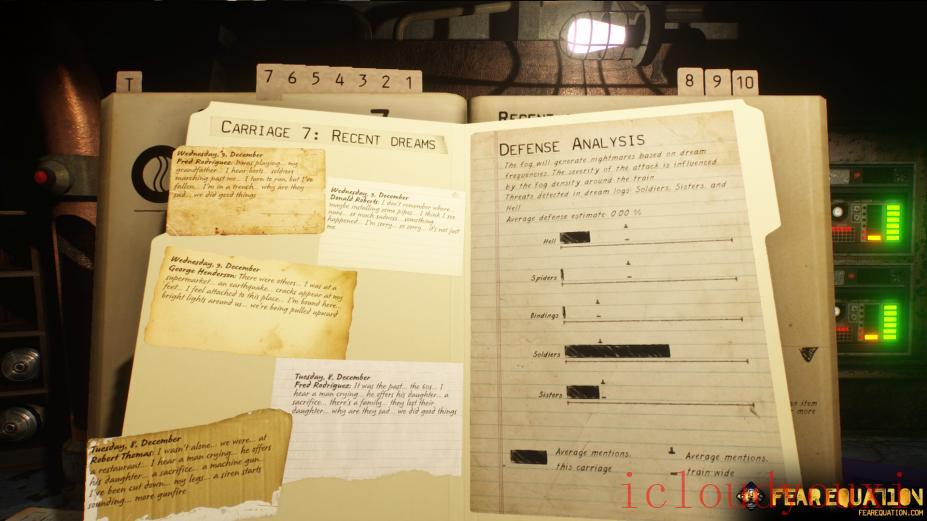 T
7 6 5 4 3 2 1
8 9 10
7
CARRIAGE 7: RECENT DREAMS
Wednesday, 9. December
Fred Rodriguez: It was playing... my
grandfather... I hear boots... soldiers
marching past me... I turn to run, but I've
fallen... I'm in a trench... why are they
sad... we did good things
Wednesday, 9. December
Donald Roberts: I don't remember where...
maybe installing some pipes... I think I see
nuns... so much sadness... something
happened... I'm sorry... so sorry... it's not just
me
Wednesday, 9. December
George Henderson: There were others... I was at a
supermarket... an earthquake... cracks appear at my
feet... I feel attached to this place... I'm bound here...
bright lights around us... we're being pulled upward
Tuesday, 8. December
Fred Rodriguez: It was the past... the 60s... I
hear a man crying... he offers his daughter... a
sacrifice... there's a family... they lost their
daughter... why are they sad... we did good things
Tuesday, 8. December
Robert Thomas: I wasn't alone... we were... at
a restaurant... I hear a man crying... he offers
his daughter... a sacrifice... a machine gun...
I've been cut down... my legs... a siren starts
sounding... more gunfire
RECENT
DEFENSE ANALYSIS
The fog will generate nightmares based on dream
frequencies. The severity of the attack is influenced
by the fog density around the train.
Threats detected in dream logs: Soldiers, Sisters, and
Hell
Average defense estimate 0.00 %
Hell
Spiders
Bindings
Soldiers
Sisters
Average mentions,
this carriage
Average mentions,
train-wide
an item
more
icloudyouxi
FEAR EQUATION
FEAREQUATION.COM